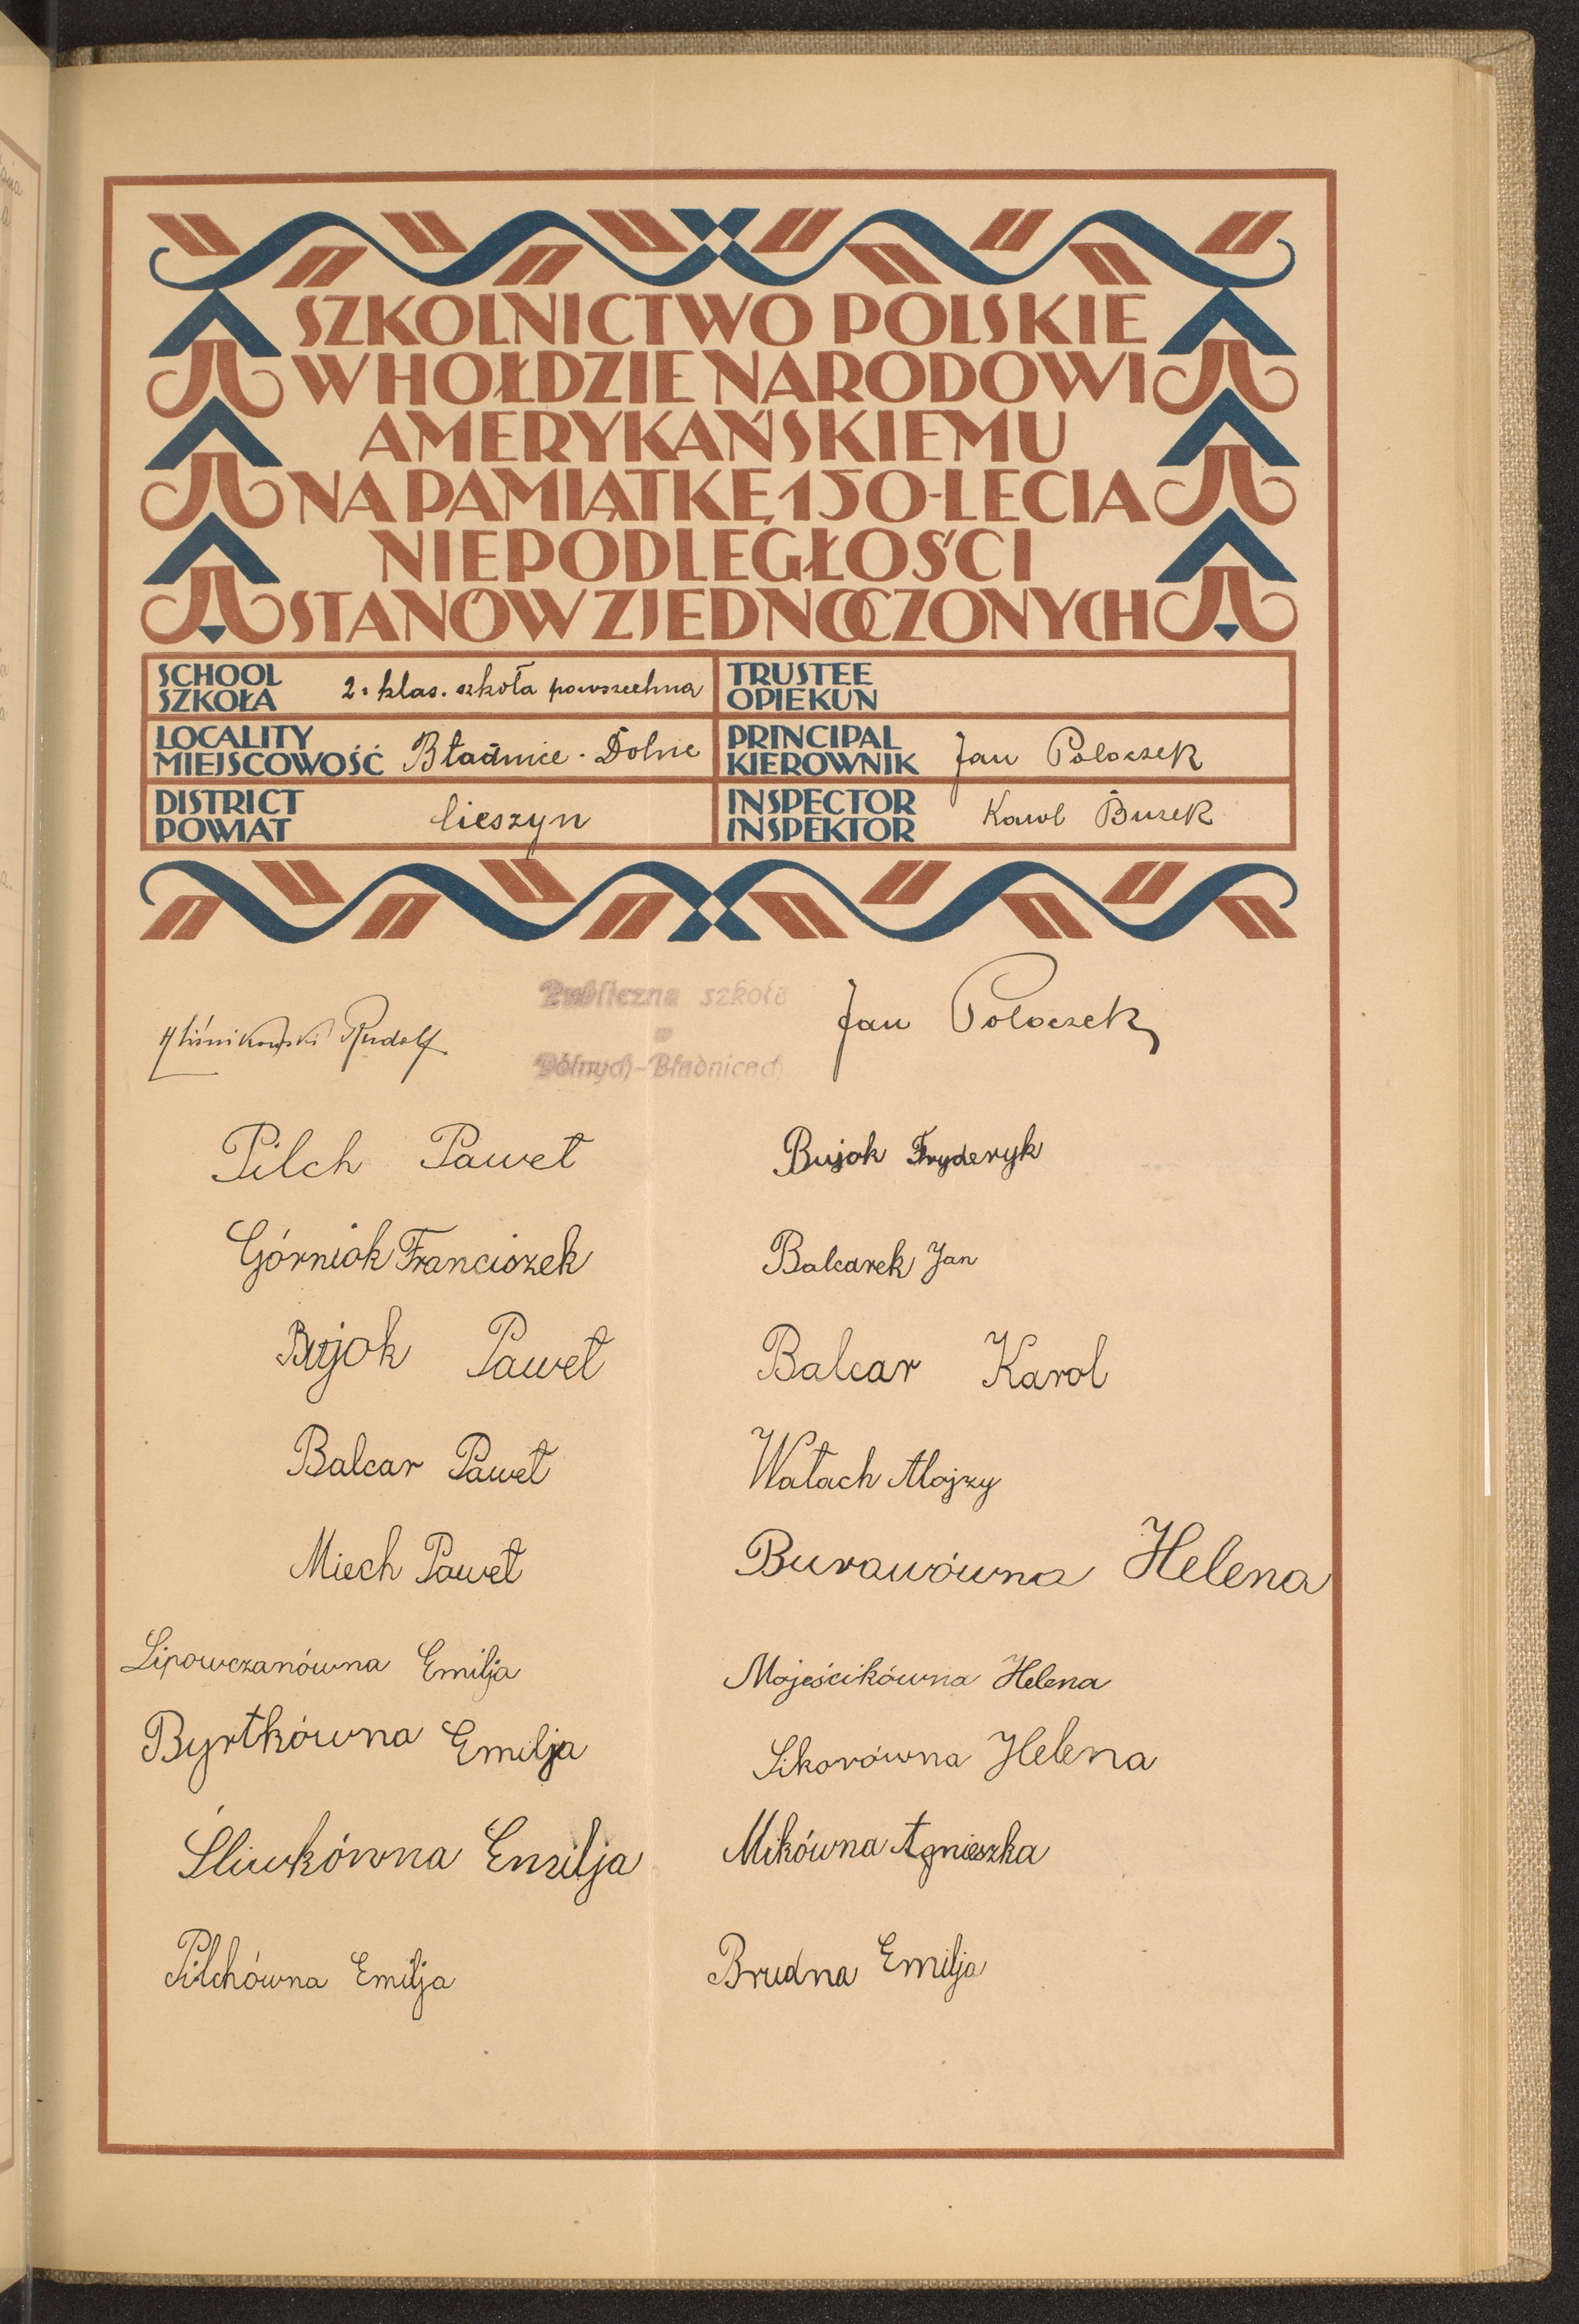 SZKOLNICTWO POLSKIE
W HOŁDZIE NARODOWI
AMERYKAŃSKIEMU
NA PAMIĄTKĘ 150-LECIA
NIEPODLEGŁOŚCI
STANÓW ZJEDNOCZONYCH
SCHOOL
SZKOŁA 2. klas. szkoła powszechna
TRUSTEE
OPIEKUN
LOCALITY
MIEJSCOWOŚĆ Bładnice - Dolne
PRINCIPAL
KIEROWNIK Jan Poloczek
DISTRICT
POWIAT Cieszyn
INSPECTOR
INSPEKTOR Karol Buzek
Rudolf
Publiczna szkoła
w
Dolnych-Bładnicach
Jan Poloczek
Pilch Paweł
Bujok Fryderyk
Górniok Franciszek
Balcarek Jan
Bujok Paweł
Balcar Karol
Balcar Paweł
Wałach Alojzy
Miech Paweł
Burawówna Helena
Lipowczanówna Emilja
Mojeścikówna Helena
Byrtkówna Emilja
Sikorówna Helena
Śliwkówna Emilja
Mikówna Agnieszka
Pilchówna Emilja
Brudna Emilja